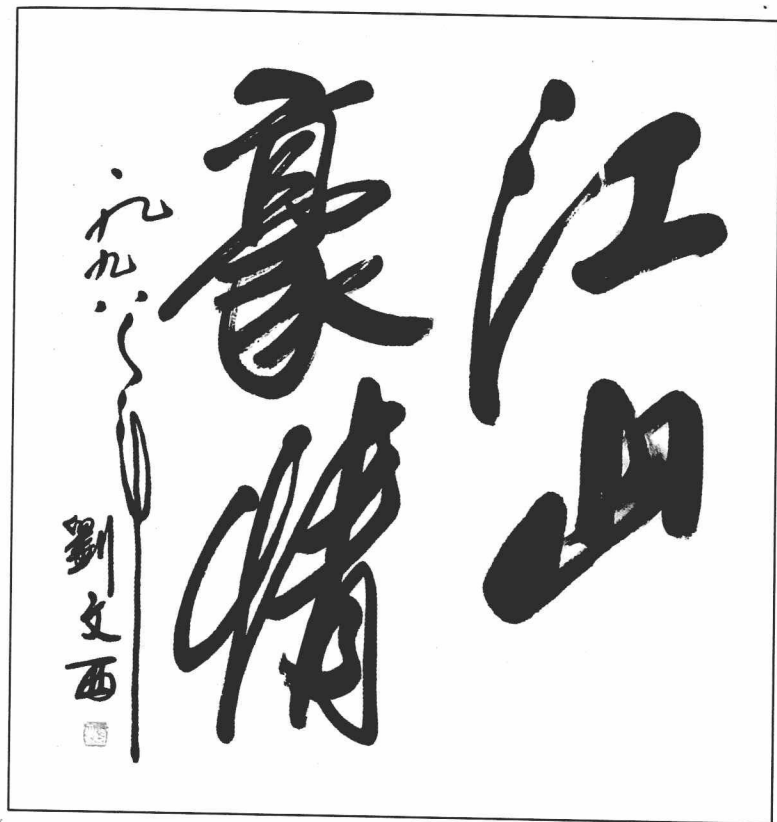 江山
豪情
一九九八年
劉文西